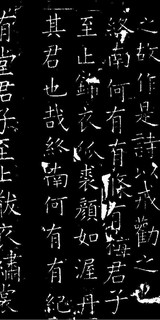 之故作是詩以戒勸之
終南何有有條有梅君子
至止錦衣狐裘顏如渥丹
其君也哉終南何有有紀
有堂君子至止黻衣繡裳